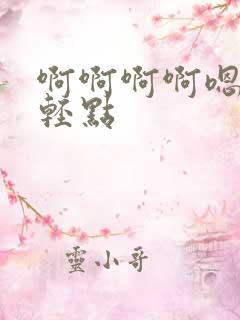 啊啊啊啊嗯
輕點
靈小哥